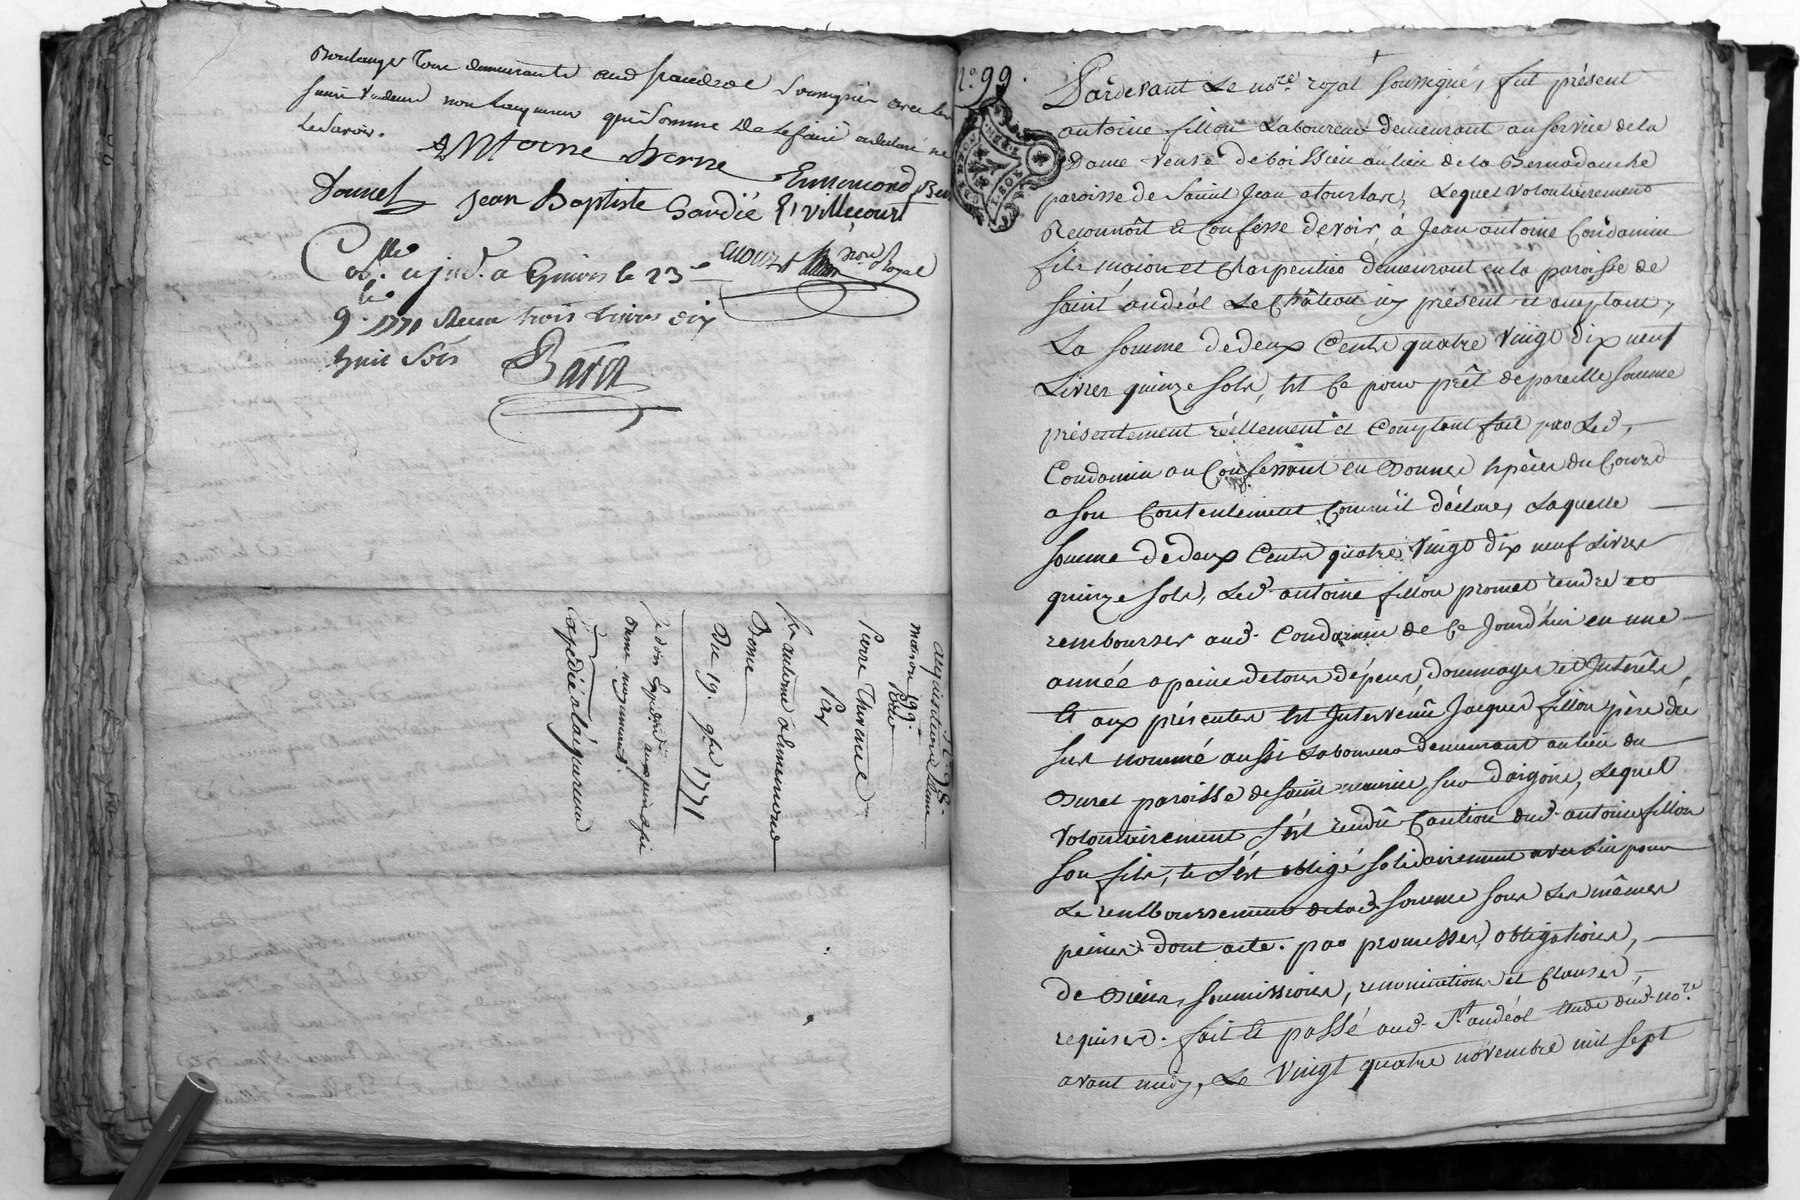 Boulanger tous demeurants aud. st andeol soussignés avec les
susd. vendeur non l'acquereur qui somme de le faire a declaré ne
le savoir.
Antoine Thevenet
Ennemond Bur
Donnet Jean Baptiste Gardié f. villecourt
Collé. a jnd. a Givors le 23e
9bre 1771 Receu trois Livres dix
huit sols
Not. Royal
Barot
N.° 98.
acquisition d'une
maison 199ll
Pour
Pierre Thevenet
Par
Sr. antoine à limemond
Donnet
Du 19. 9bre 1771
expédié à l'acquereur
N.° 99.
Pardevant Le nore. royal soussigné, fut présent
antoine fillon Laboureur demeurant au service de la
Dame veuve de boissieu au lieu de la Bernodanche
paroisse de Saint Jean a tourlas, Lequel volontairement
Reconnoît et Confesse devoir, à Jean antoine Condamin
fils maion et Charpentier demeurant en la paroisse de
saint andéol Le Château icy présent et acceptant,
La somme de deux Cents quatre vingt dix neuf
Livres quinze sols, Et Ce pour prêt de pareille somme
présentement réellement et Comptant fait par Led.
Condamin au Confessant en Bonnes Espèces du Cours
a son Contentement Comm'il déclare, Laquelle
somme de deux Cents quatre vingt dix neuf Livres
quinze sols, Led. antoine fillon promet rendre et
rembourser aud. Condamin de Ce Jourd'hui en une
année a peine de tous dépens, dommages et Intérêts,
Et aux présentes Est Intervénû Jacques fillon père du
sus nommé aussi Laboureur demeurant au lieu du
Buret paroisse de saint maurice sur dargoire, Lequel
volontairement S'est rendû Caution dud. antoine fillon
son fils, Et S'est obligé solidairement avec Lui pour
Le remboursement de lad. somme sous Les mêmes
peines. dont acte. par promesses, obligations,
de Biens, soumissions, renonciations et Clauses,
requises. fait Et passé aud. St. andéol Etude dud. nore.
avant midy, Le vingt quatre novembre mil sept